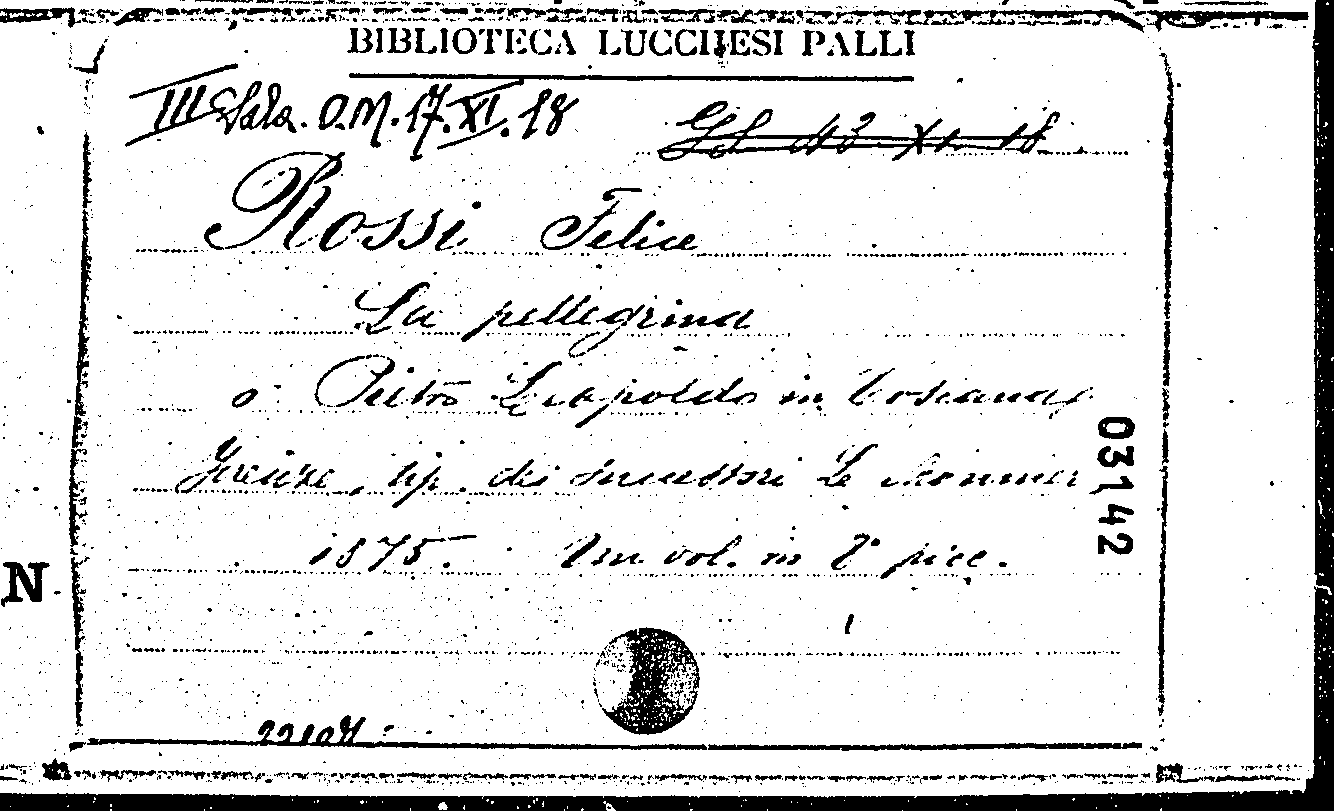 BIBLIOTECA LUCCHESI PALLI
III Sala. O.M. 17. XI. 18
XI. 18.
Rossi Felice
La pellegrina
o Pietro Leopoldo in Toscana
Firenze, tip. dei successori Le Monnier,
1875. Un vol. in 8° picc.
03142
N